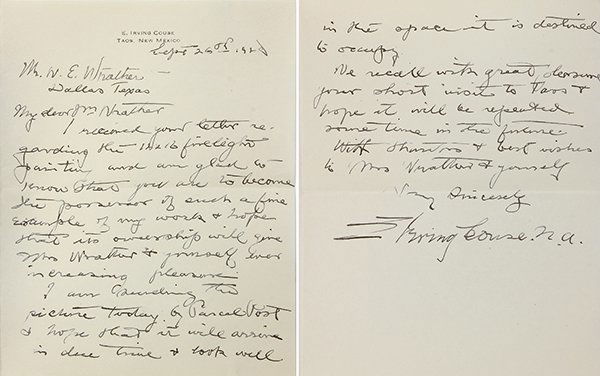 E. IRVING COUSE
TAOS, NEW MEXICO
Sept 26th
Mr. W. E. Wrather —
Dallas Texas
My dear Mr Wrather
I received your letter re-
garding the 12x16 firelight
painting and am glad to
know that you are to become
the possessor of such a fine
example of my work & hope
that its ownership will give
Mrs Wrather & yourself ever
increasing pleasure
I am sending the
picture today by Parcel Post
& hope that it will arrive
in due time & look well
in the space it is destined
to occupy
We recall with great pleasure
your short visit to Taos &
hope it will be repeated
some time in the future.
With thanks & best wishes
to Mrs Wrather & yourself
Very Sincerely
E Irving Couse. N.A.